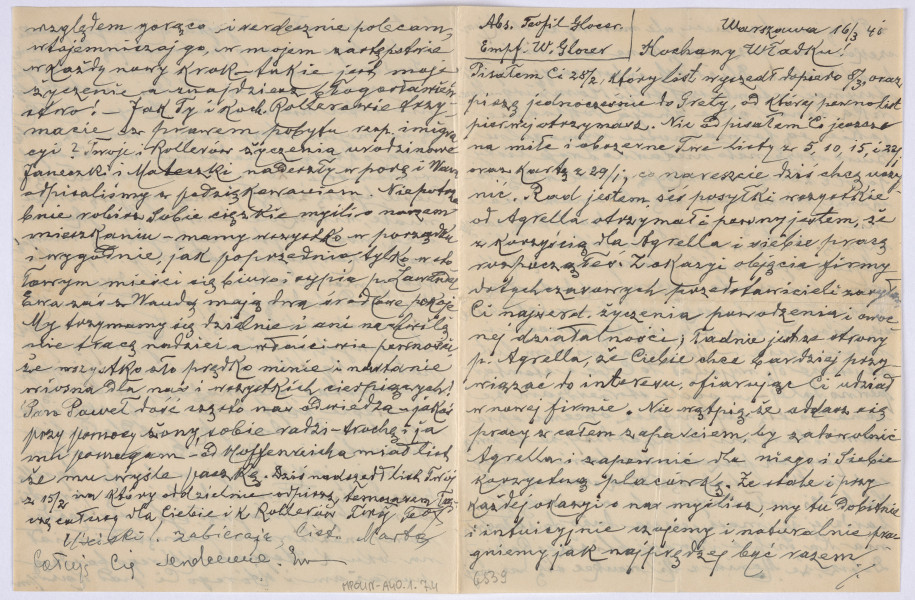 Abs. Teofil Glocer.
Empf. W. Glocer
Warszawa 16/3 40
Kochany Władku!
Pisałem Ci 28/2, który list wyszedł dopiero 8/3, oraz
piszę jednocześnie do Grety, od której pewno list
pierwej otrzymasz. Nie odpisałem Ci jeszcze
na miłe i obszerne Twe listy z 5, 10, 15, i 22/1
oraz kartę z 29/1, co nareszcie dziś chcę uczy-
nić. Rad jestem, żeś posyłki wszystkie
od Agrella otrzymał i pewny jestem, że
z korzyścią dla Agrella i siebie pracę
rozpocząłeś. Z okazyi objęcia firmy
dotychczasowych przedstawicieli
Ci najserd. życzenia powodzenia i owoc-
nej działalności; ładnie jest ze strony
p. Agrella, że Ciebie chce bardziej przy-
wiązać do interesu, ofiarując Ci udział
w nowej firmie. Nie wątpię, że oddasz się
pracy z całem zaparciem, by zadowolnić
Agrella i zapewnić dla niego i Siebie
korzystną placówkę. Że stale i przy
każdej okazyi o nas myślisz, my tu dobitnie
i intuicyjnie czujemy i naturalnie pra-
gniemy jak najprędzej być razem
względem gorąco i serdecznie polecam,
wtajemniczaj go, w mojem zastępstwie
w każdy nowy krok – takie jest moje
życzenie a znajdziesz błogosławień-
stwo! – Jak Ty i Koch. Kollerowie trzy-
macie się z prawem pobytu resp. imigra-
cyi? Twoje i Kollerów życzenia urodzinowe
Janeczki i Mateuszki nadeszły w porę i Wam
odpisaliśmy z podziękowaniem. Niepotrze-
bnie robisz Sobie ciężkie myśli o naszem
mieszkaniu – mamy wszystko w porządku
i wygodnie, jak poprzednio, tylko w sto-
łowym mieści się biuro i sypia
Ewa zaś z Wandą mają dwa środkowe pokoje
My trzymamy się dzielnie i ani na chwilę
nie tracę nadziei a właściwie pewności,
że wszystko zło prędko minie i nastanie
wiosna dla nas i wszystkich cierpiących!
Pan Paweł dość często nas odwiedza – jakoś
przy pomocy żony, sobie radzi – trochę i ja
mu pomagam – od Hoffenreicha miał list
że mu wyśle paczkę. Dziś nadszedł list Twój
z 15/2 na który oddzielnie odpiszę, tymczasem
całusy dla Ciebie i K. Kollerów Twój Teofil
Uściski zabierają Ciot. Marta
Całuję Cię serdecznie.
MPOLIN-A40.1.74
6539